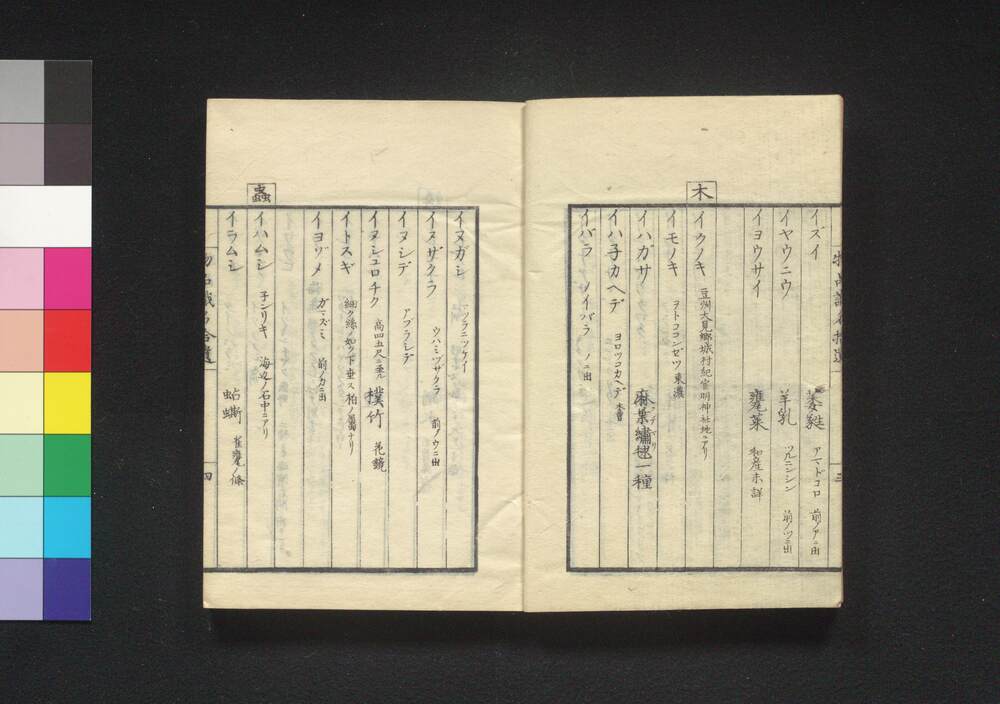 イズイ 萎蕤 アマドコロ 前ノアニ出
イヤウニウ 羊乳 ツルニンジン 前ノツニ出
イヨウサイ 蕹菜 和産未詳
木
イクノキ 豆州大見郷城村紀宮明神社地ニアリ
イモノキ ヲトココンゼツ 東濃
イハガサ 麻葉繡毬一種
イハ子カヘデ ヨロツコカヘデ 木曽
イバラ ノイバラ ノニ出
三
イヌガシ
イヌザクラ ウハミヅザクラ 前ノウニ出
イヌシデ アブラシデ
イヌシユロチク 高四五尺ニ至ル 樸竹 花鏡
イトスギ 細ク絲ノ如ク下垂ス 柏ノ属ナリ
イヨヅメ ガマズミ 前ノカニ出
蟲
イハムシ 子ンリキ 海辺ノ石中ニアリ
イラムシ 蛅蟖 雀甕ノ條
物品識名拾遺
四